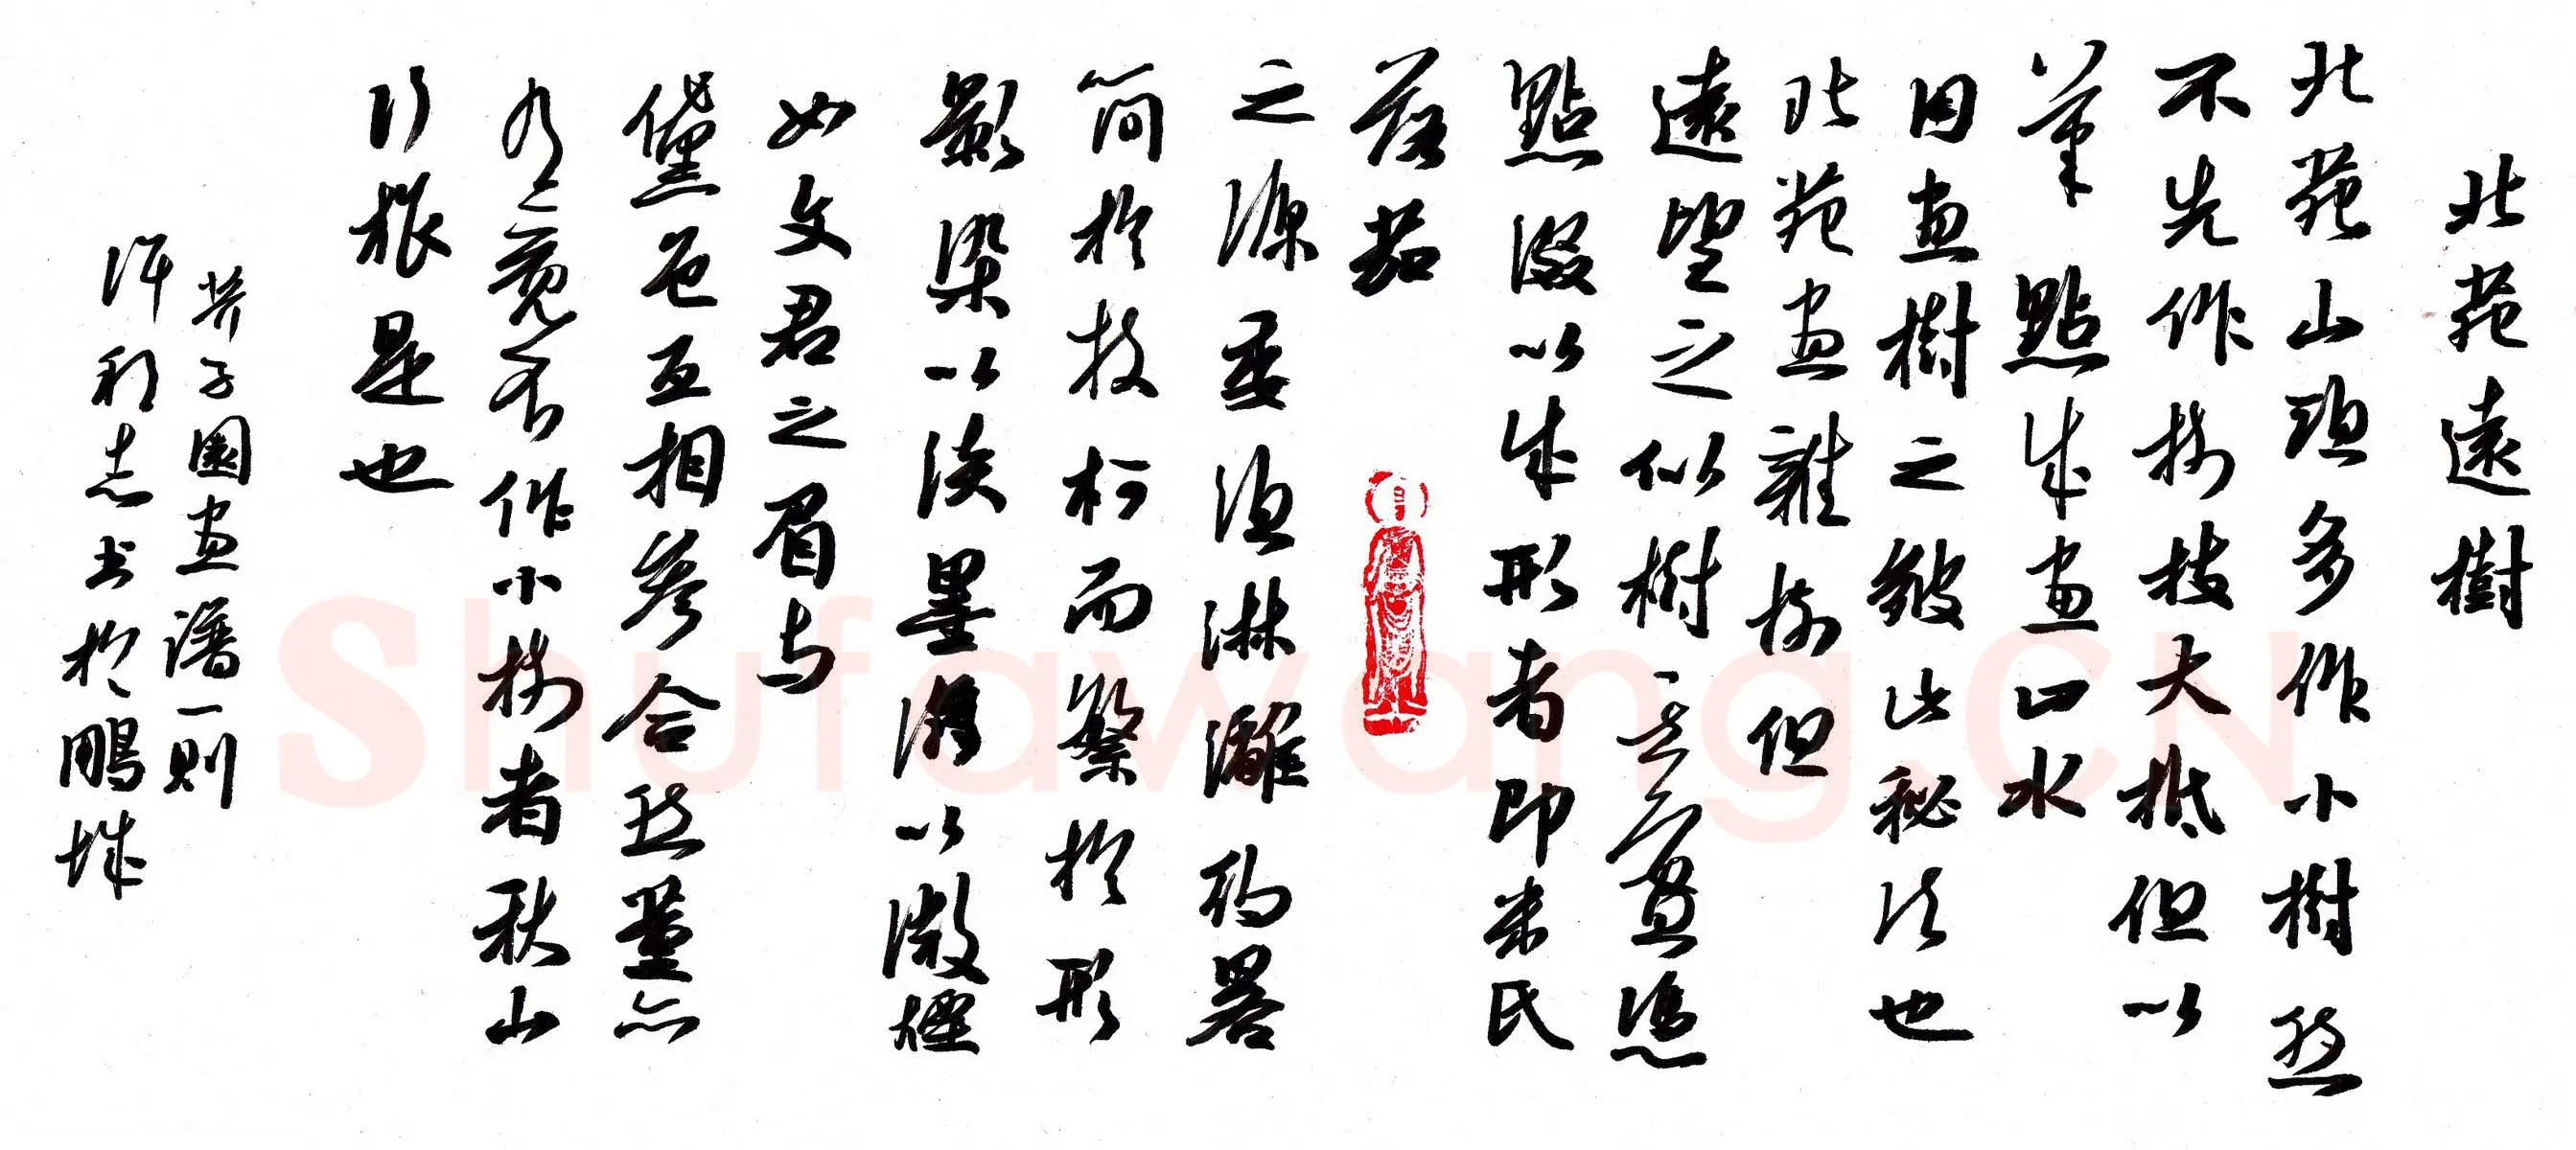 北苑遠樹
北苑山頭多作小樹然
不先作樹枝大抵但以
筆點成畫山水
用畫樹之皴此秘法也
北苑畫雜樹但
遠望之似樹其實憑
點綴以成形者即米氏
落茄
之源委須淋漓約略
簡於枝柯而繁於形
影染以淡墨以微煙
如文君之眉与
黛色互相參合然董亦
有竟不作小樹者秋山
行旅是也
芥子園畫譜一則
許志书於鵬城
Shufawang.CN